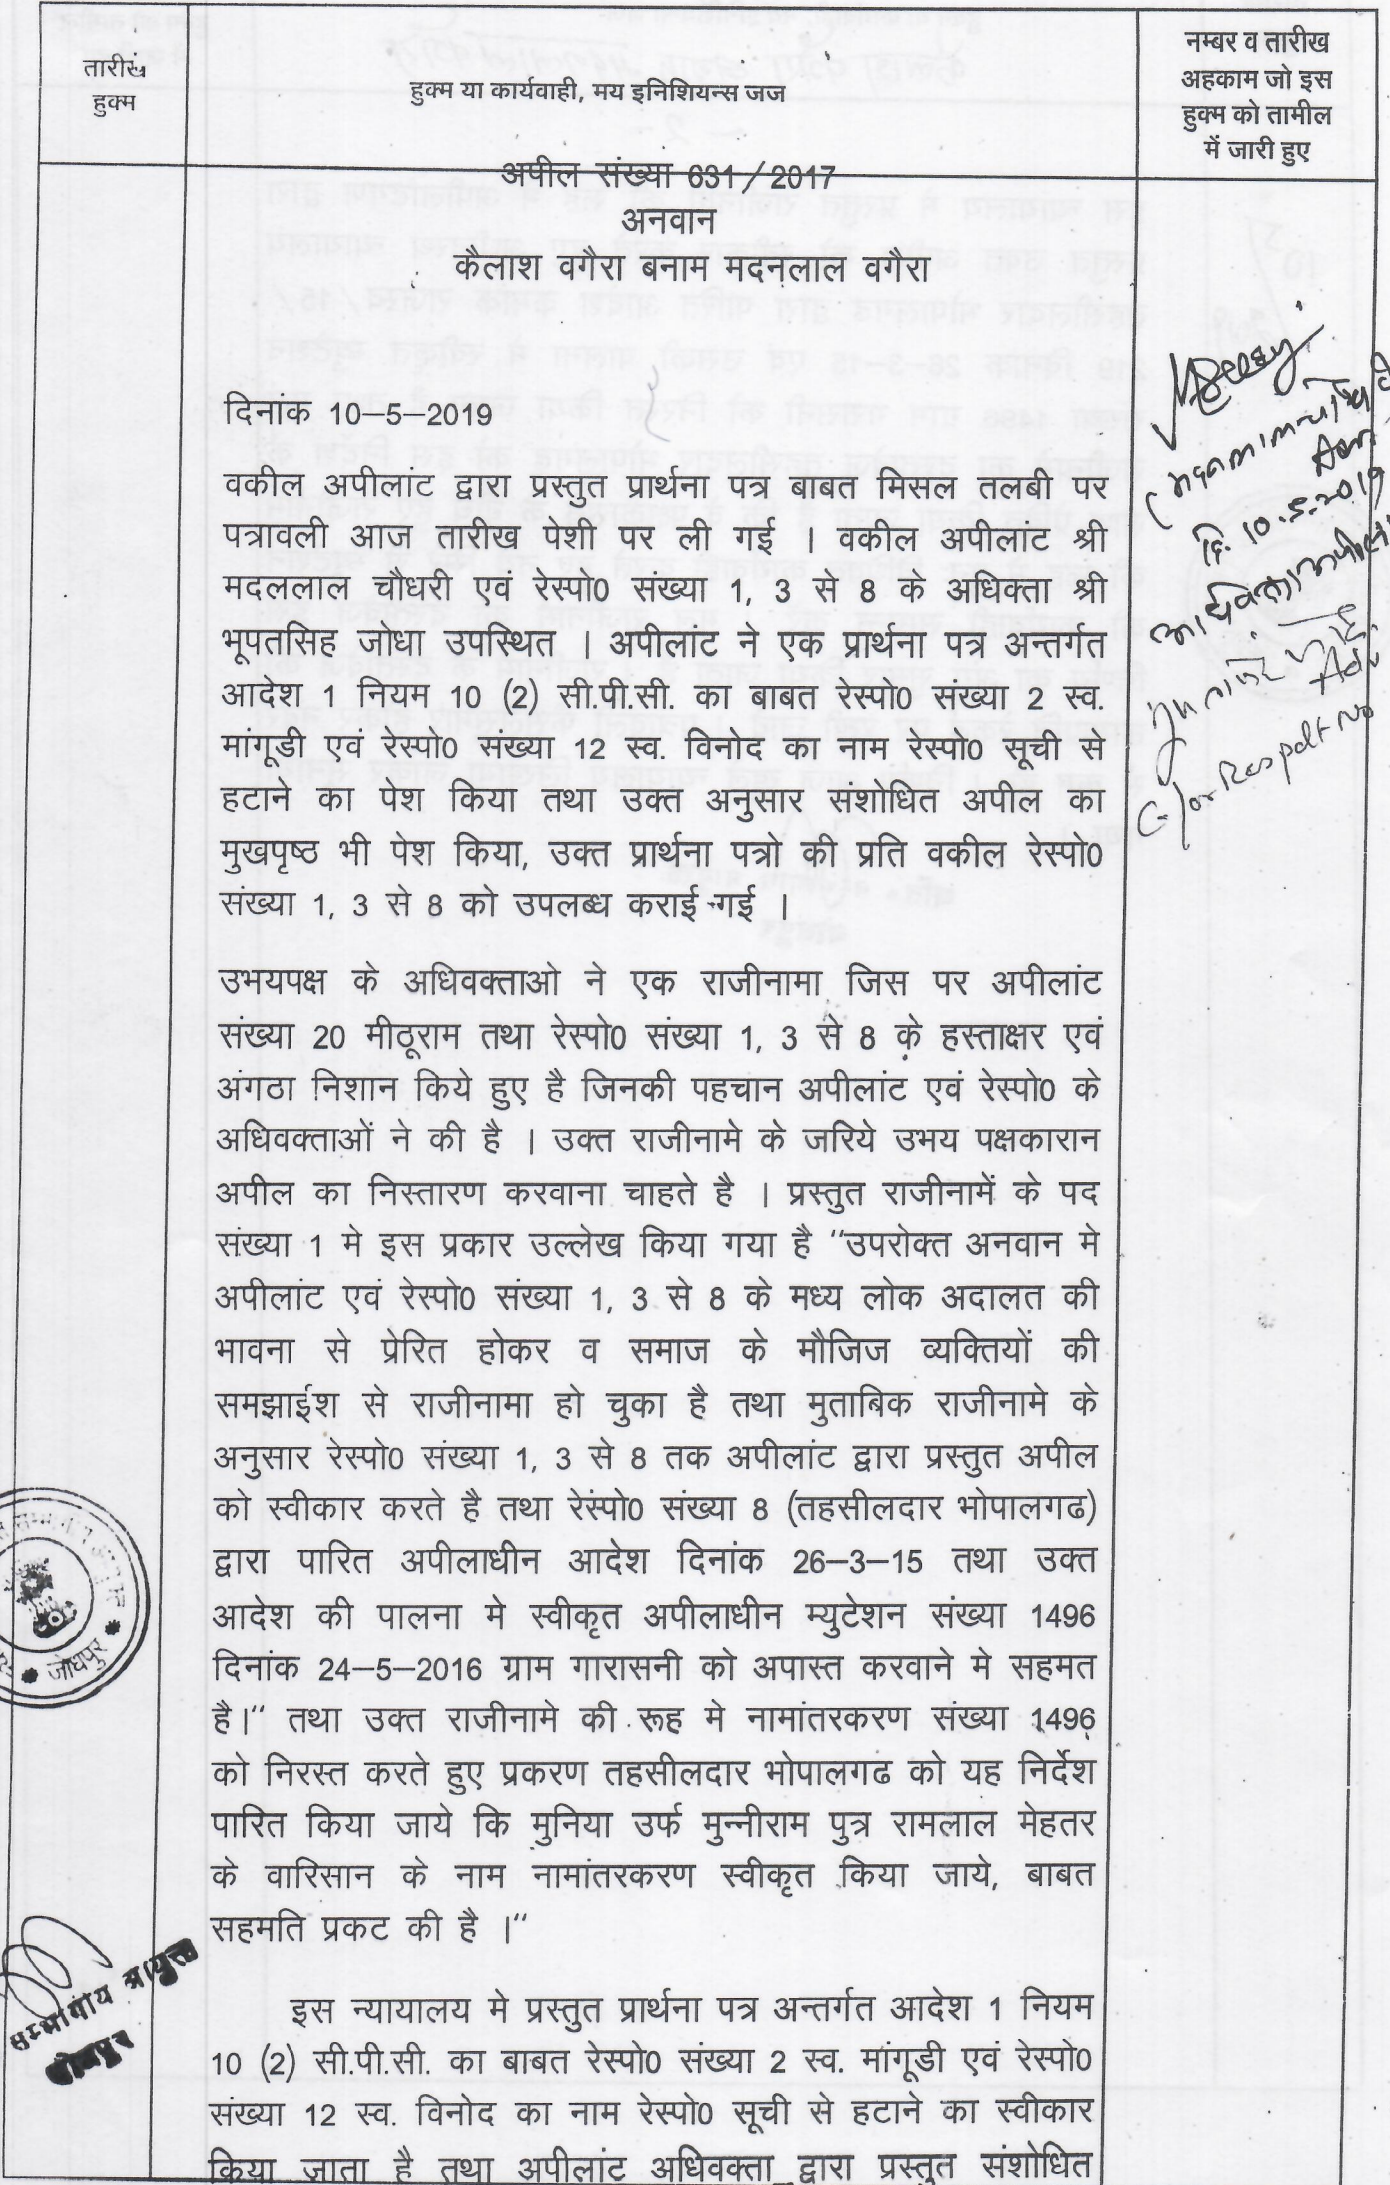 तारीख
हुक्म
हुक्म या कार्यवाही, मय इनिशियन्स जज
नम्बर व तारीख
अहकाम जो इस
हुक्म को तामील
में जारी हुए
अपील संख्या 631/2017
अनवान
कैलाश वगैरा बनाम मदनलाल वगैरा
दिनांक 10–5–2019
वकील अपीलांट द्वारा प्रस्तुत प्रार्थना पत्र बाबत मिसल तलबी पर
पत्रावली आज तारीख पेशी पर ली गई । वकील अपीलांट श्री
मदललाल चौधरी एवं रेस्पो0 संख्या 1, 3 से 8 के अधिक्ता श्री
भूपतसिह जोधा उपस्थित । अपीलांट ने एक प्रार्थना पत्र अन्तर्गत
आदेश 1 नियम 10 (2) सी.पी.सी. का बाबत रेस्पो0 संख्या 2 स्व.
मांगूडी एवं रेस्पो0 संख्या 12 स्व. विनोद का नाम रेस्पो0 सूची से
हटाने का पेश किया तथा उक्त अनुसार संशोधित अपील का
मुखपृष्ठ भी पेश किया, उक्त प्रार्थना पत्रो की प्रति वकील रेस्पो0
संख्या 1, 3 से 8 को उपलब्ध कराई गई ।
उभयपक्ष के अधिवक्ताओ ने एक राजीनामा जिस पर अपीलांट
संख्या 20 मीठूराम तथा रेस्पो0 संख्या 1, 3 से 8 के हस्ताक्षर एवं
अंगठा निशान किये हुए है जिनकी पहचान अपीलांट एवं रेस्पो0 के
अधिवक्ताओं ने की है । उक्त राजीनामे के जरिये उभय पक्षकारान
अपील का निस्तारण करवाना चाहते है । प्रस्तुत राजीनामें के पद
संख्या 1 मे इस प्रकार उल्लेख किया गया है "उपरोक्त अनवान मे
अपीलांट एवं रेस्पो0 संख्या 1, 3 से 8 के मध्य लोक अदालत की
भावना से प्रेरित होकर व समाज के मौजिज व्यक्तियों की
समझाईश से राजीनामा हो चुका है तथा मुताबिक राजीनामे के
अनुसार रेस्पो0 संख्या 1, 3 से 8 तक अपीलांट द्वारा प्रस्तुत अपील
को स्वीकार करते है तथा रेस्पो0 संख्या 8 (तहसीलदार भोपालगढ)
द्वारा पारित अपीलाधीन आदेश दिनांक 26–3–15 तथा उक्त
आदेश की पालना मे स्वीकृत अपीलाधीन म्युटेशन संख्या 1496
दिनांक 24–5–2016 ग्राम गारासनी को अपास्त करवाने मे सहमत
है।" तथा उक्त राजीनामे की रूह मे नामांतरकरण संख्या 1496
को निरस्त करते हुए प्रकरण तहसीलदार भोपालगढ को यह निर्देश
पारित किया जाये कि मुनिया उर्फ मुन्नीराम पुत्र रामलाल मेहतर
के वारिसान के नाम नामांतरकरण स्वीकृत किया जाये, बाबत
सहमति प्रकट की है ।"
इस न्यायालय मे प्रस्तुत प्रार्थना पत्र अन्तर्गत आदेश 1 नियम
10 (2) सी.पी.सी. का बाबत रेस्पो0 संख्या 2 स्व. मांगूडी एवं रेस्पो0
संख्या 12 स्व. विनोद का नाम रेस्पो0 सूची से हटाने का स्वीकार
किया जाता है तथा अपीलांट अधिवक्ता द्वारा प्रस्तुत संशोधित
Adv.
दि. 10.5.2019
Adv.
for Respdt No
जोधपुर
सम्भागीय आयुक्त
जोधपुर